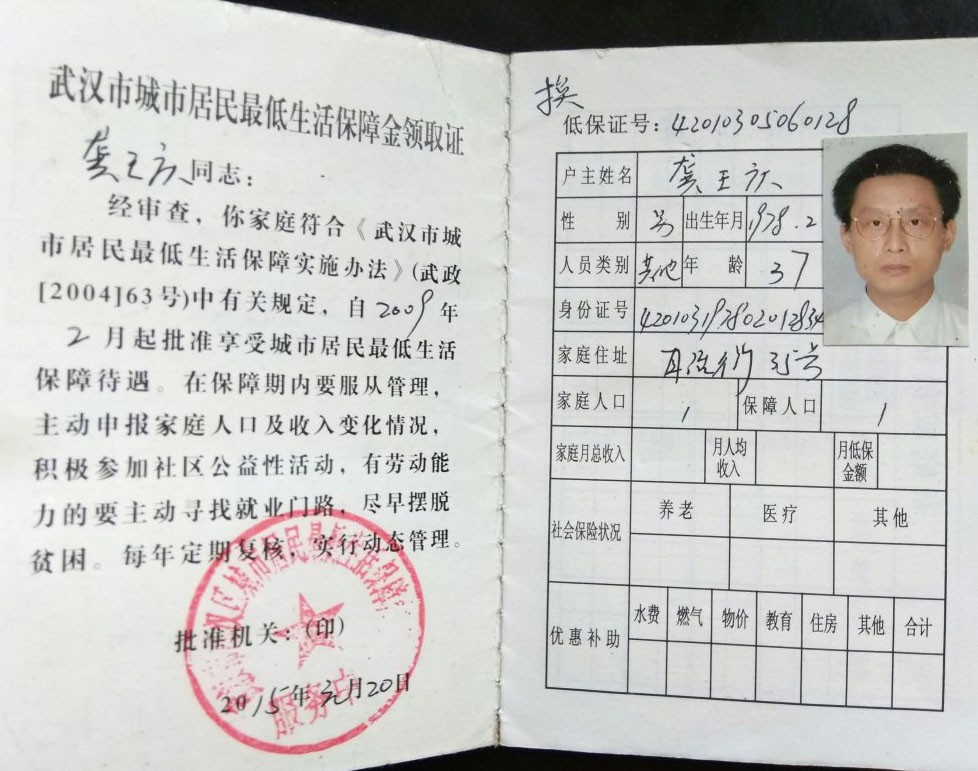 武汉市城市居民最低生活保障金领取证
龚王庆同志：
经审查，你家庭符合《武汉市城
市居民最低生活保障实施办法》(武政
[2004]63号)中有关规定，自2009年
2月起批准享受城市居民最低生活
保障待遇。在保障期内要服从管理，
主动申报家庭人口及收入变化情况，
积极参加社区公益性活动，有劳动能
力的要主动寻找就业门路，尽早摆脱
贫困。每年定期复核，实行动态管理。
批准机关：(印)
2015年元月20日
服务点
换
低保证号：42010305060128
户主姓名 龚王庆
性别 男 出生年月 1978.2
人员类别 其他 年龄 37
身份证号 420103197802012834
家庭住址 35号
家庭人口 1 保障人口 1
家庭月总收入 月人均收入 月低保金额
社会保险状况 养老 医疗 其他
优惠补助 水费 燃气 物价 教育 住房 其他 合计